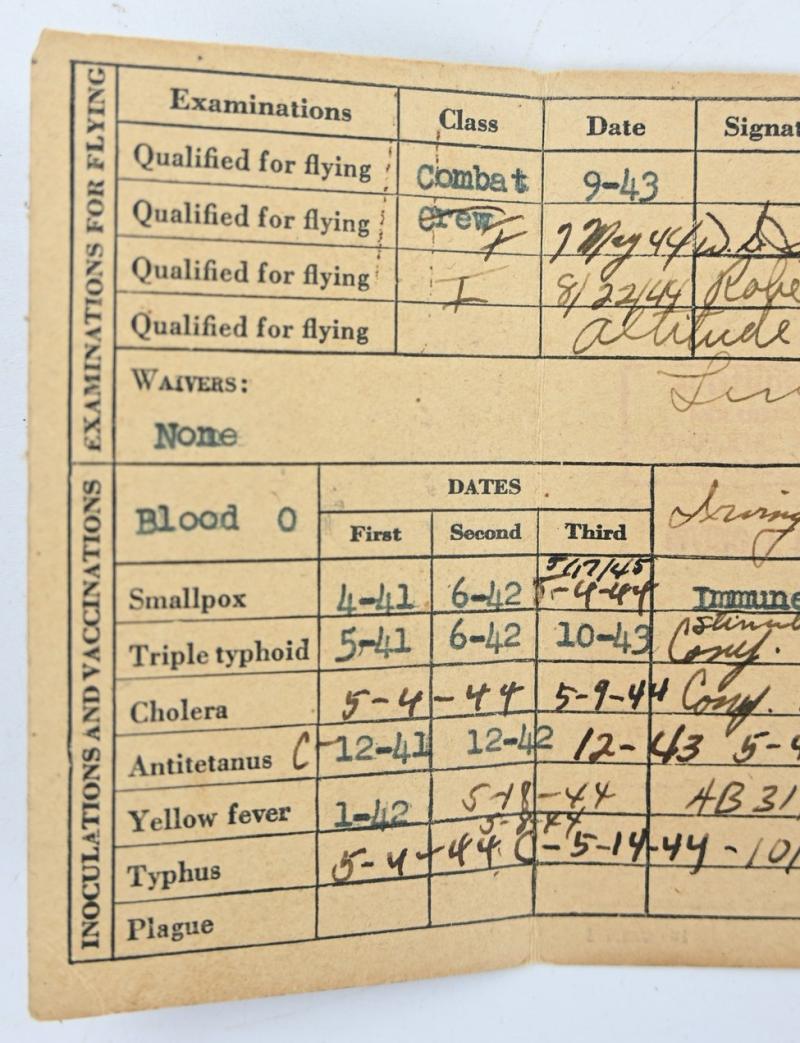 EXAMINATIONS FOR FLYING
Examinations Class Date Signat
Qualified for flying Combat 9-43
Qualified for flying Crew I 7 May 44 W. D.
Qualified for flying I 8/22/44 Robe
Qualified for flying altitude
WAIVERS:
None
INOCULATIONS AND VACCINATIONS
Blood O DATES Irving
First Second Third
5/17/45
Smallpox 4-41 6-42 5-4-44 Immune
Stimul
Triple typhoid 5-41 6-42 10-43
Cholera 5-4-44 5-9-44
Antitetanus C- 12-41 12-42 12-43 5-4
Yellow fever 1-42 5-18-44 AB 31
5-8-44
Typhus 5-4-44 C-5-14-44-101
Plague